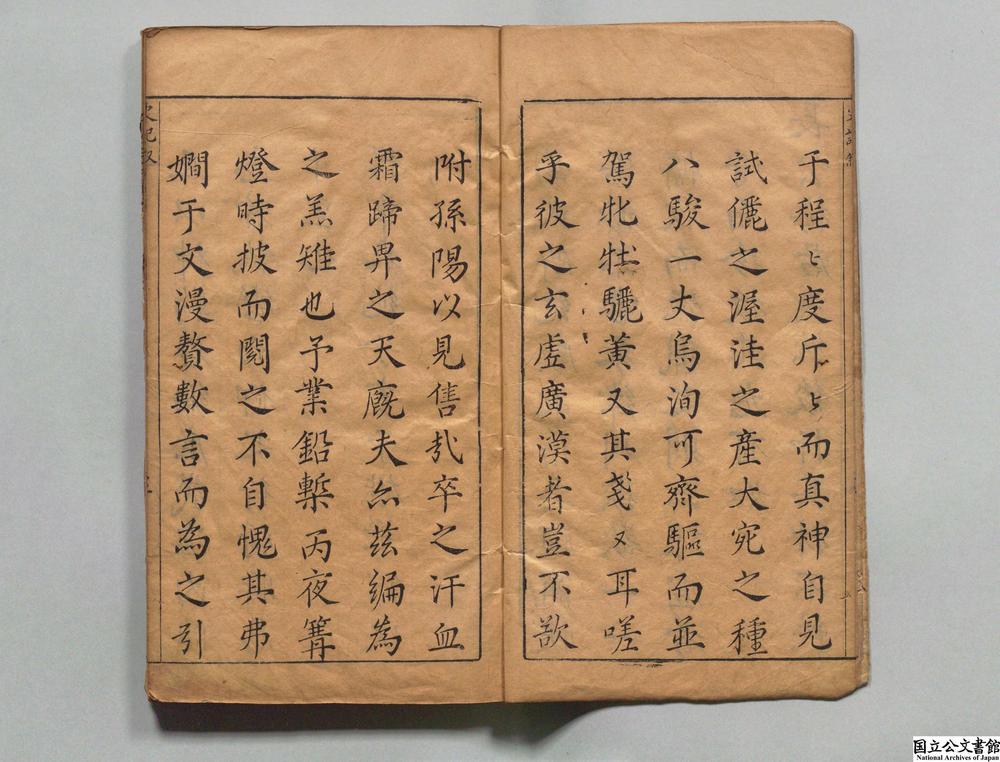 于程〻度斤〻而真神自見
試儷之渥洼之產大宛之種
八駿一丈烏洵可齊驅而並
駕牝牡驪黃又其戔又耳嗟
乎彼之玄虛廣漠者豈不歆
附孫陽以見售㢤卒之汗血
霜蹄畀之天廐夫亦玆編為
之羔雉也予業鉛槧丙夜篝
燈時披而閱之不自愧其弗
嫻于文漫贅數言而為之引
史記叙
国立公文書館
National Archives of Japan